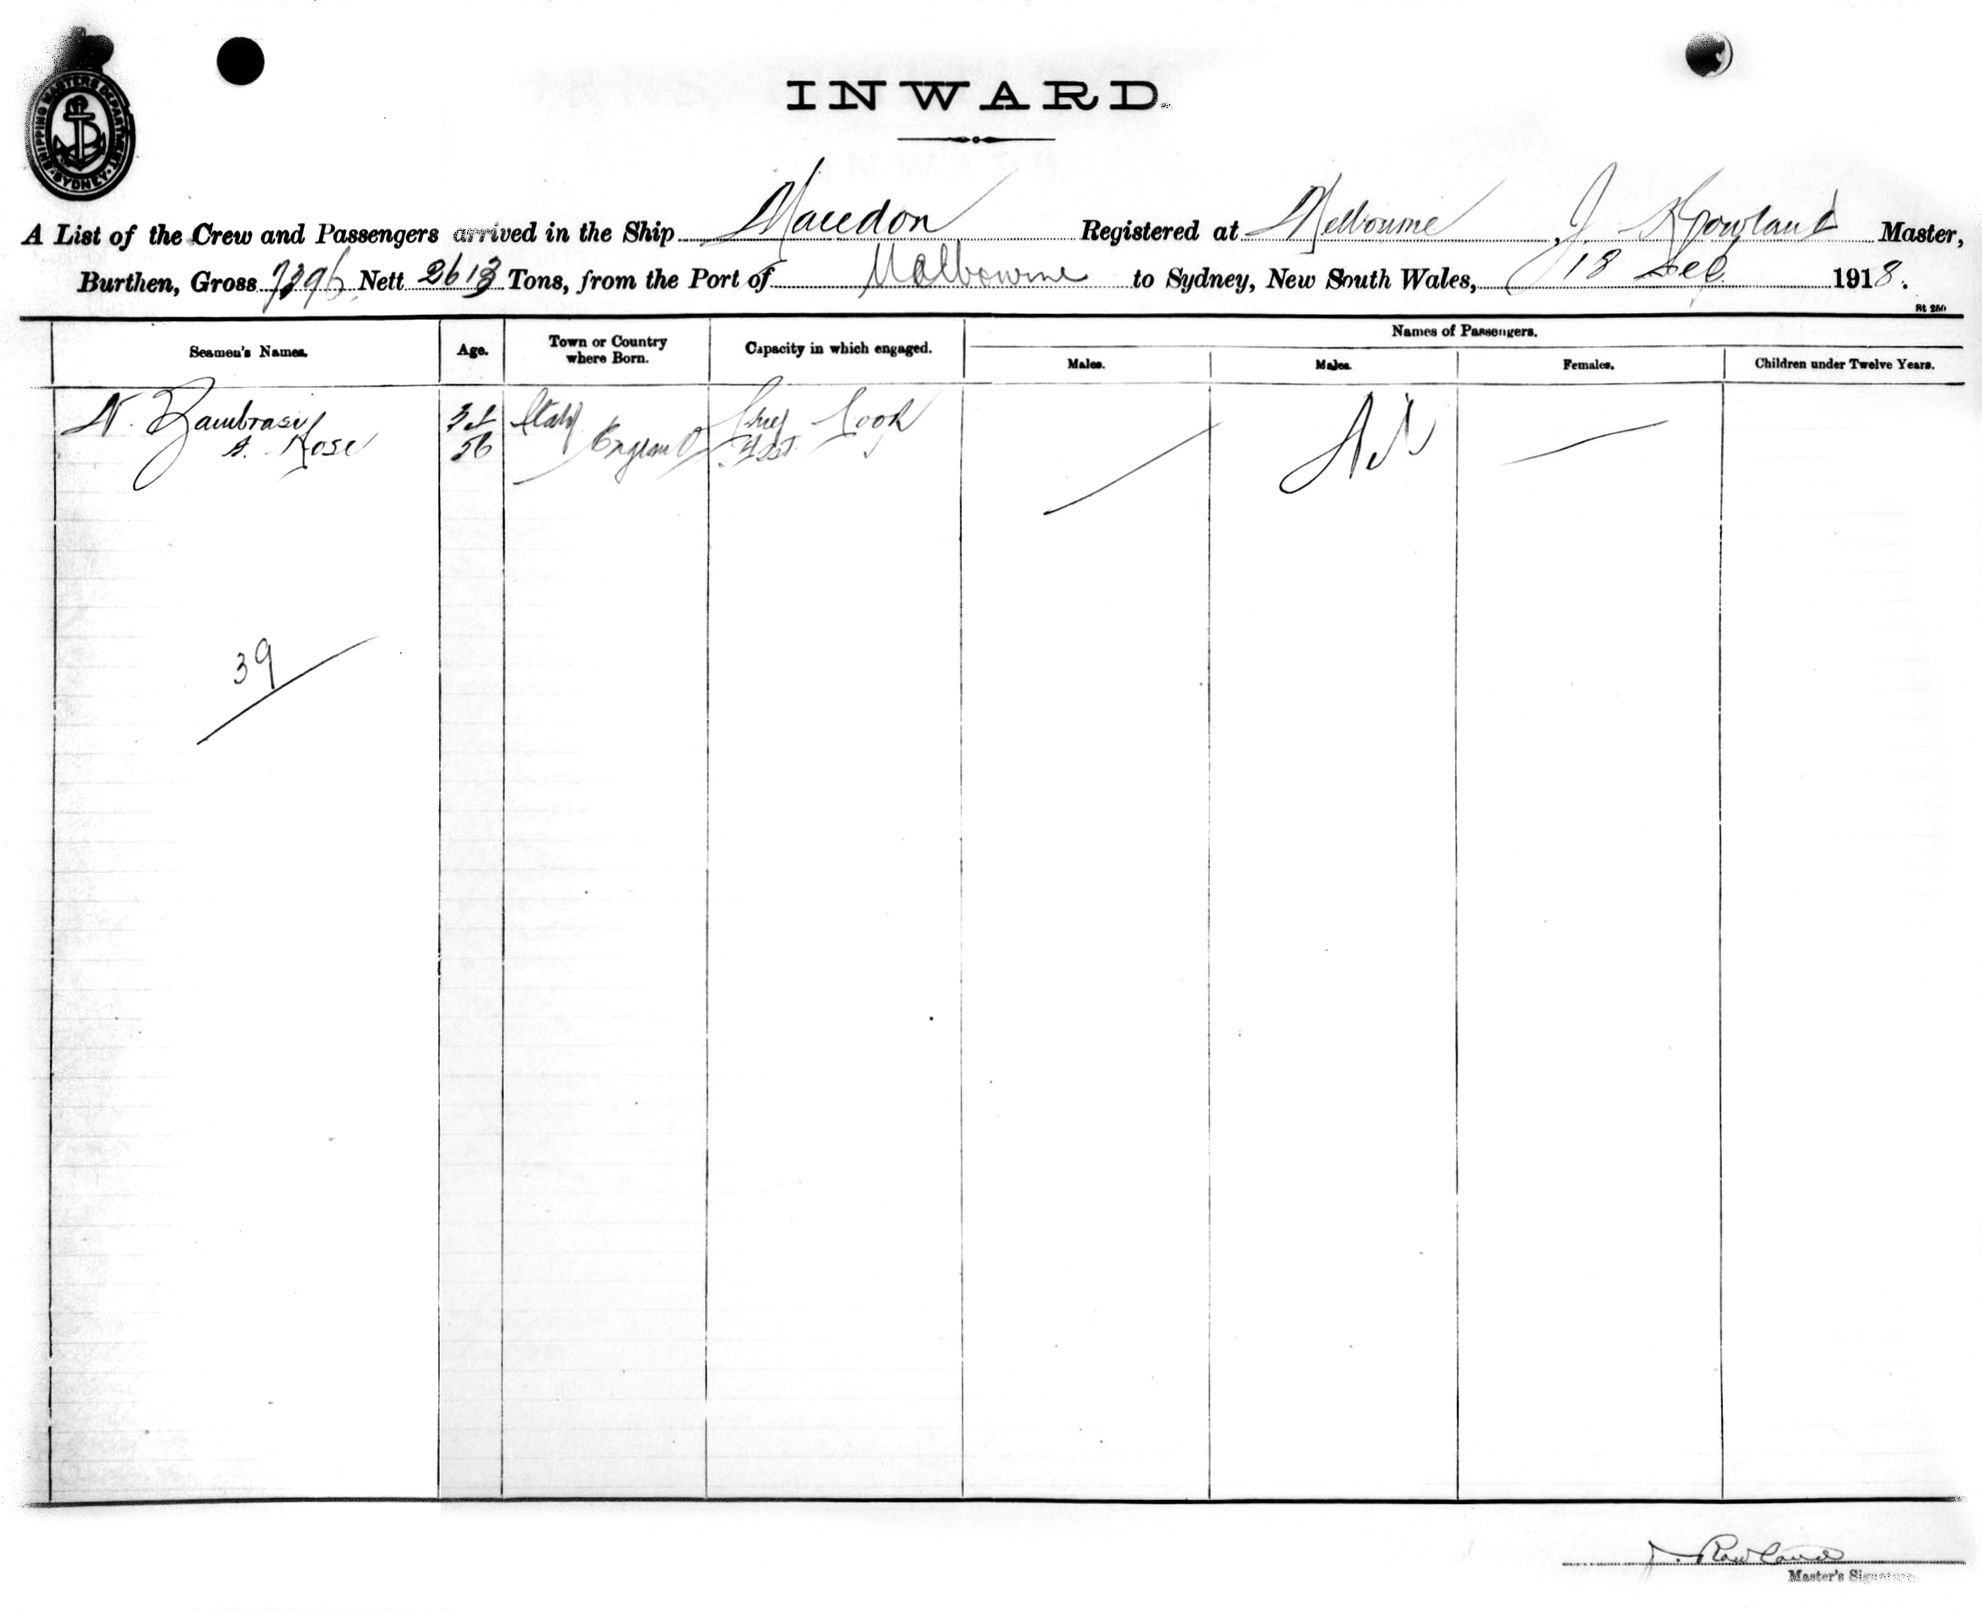 SHIPPING MASTERS DEPARTMENT SYDNEY
INWARD.
A List of the Crew and Passengers arrived in the Ship Macedon Registered at Melbourne, J. Rowland Master,
Burthen, Gross Nett 2613 Tons, from the Port of Melbourne to Sydney, New South Wales, 18 Dec 1918.
St 250
Names of Passengers.
Seamen's Names. Age. Town or Country where Born. Capacity in which engaged. Males. Males. Females. Children under Twelve Years.
N. Italy Chief Cook Nil
A. Rose 56 England
39
J. Rowland
Master's Signature.